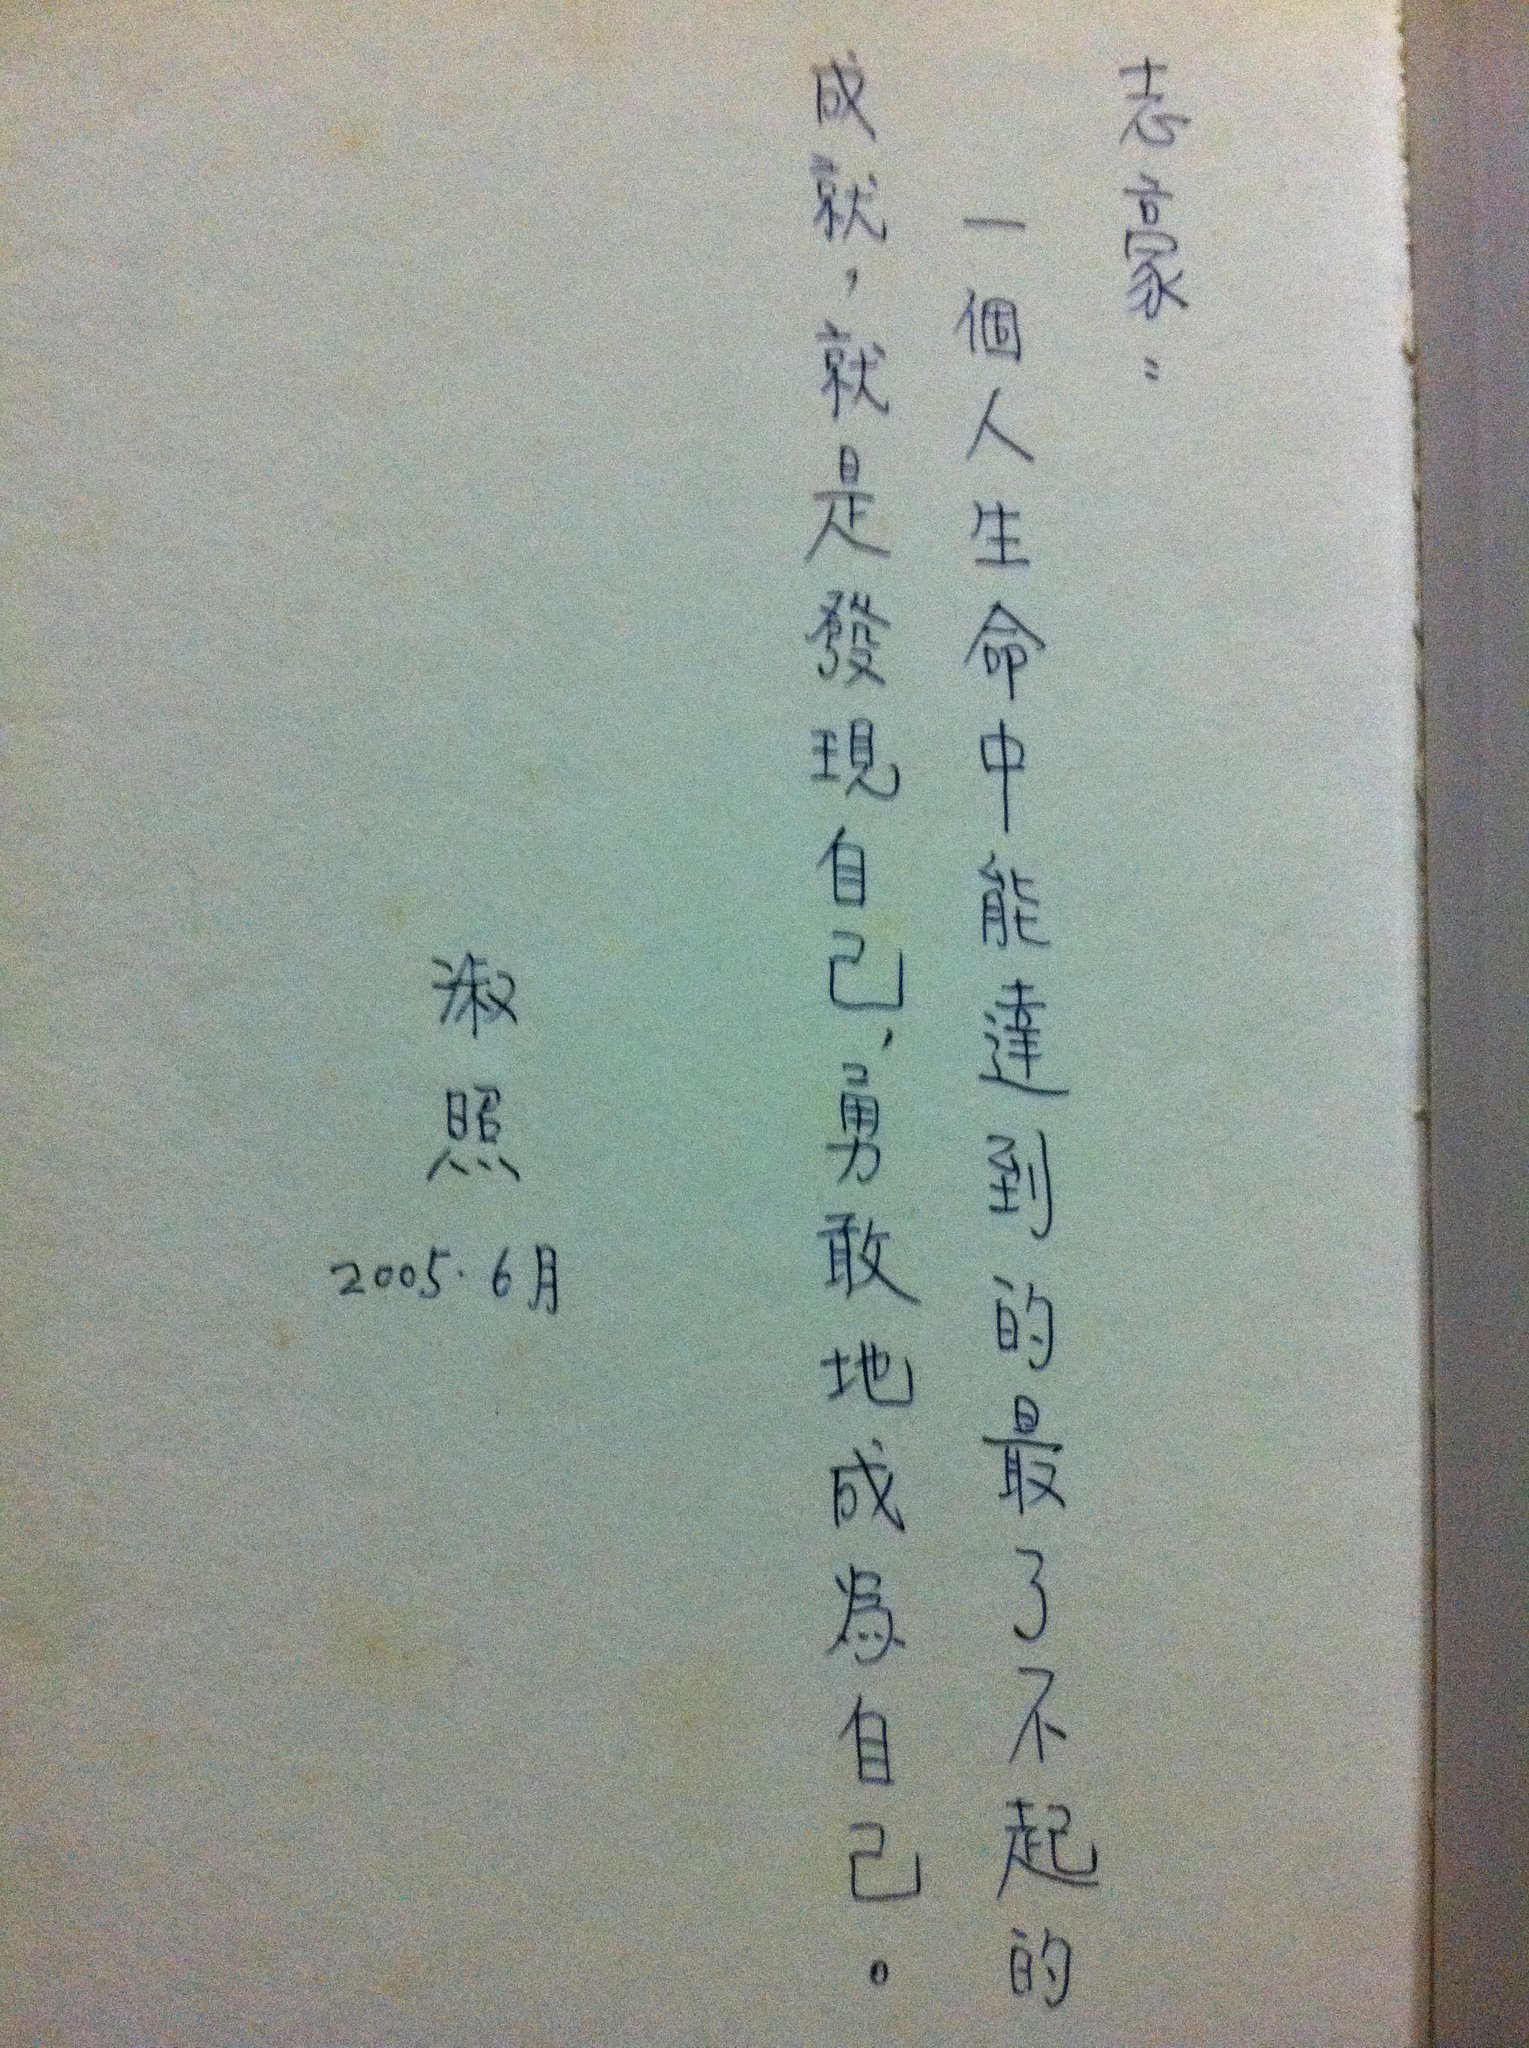 志豪：
一個人生命中能達到的最了不起的
成就，就是發現自己，勇敢地成為自己。
淑照
2005.6月